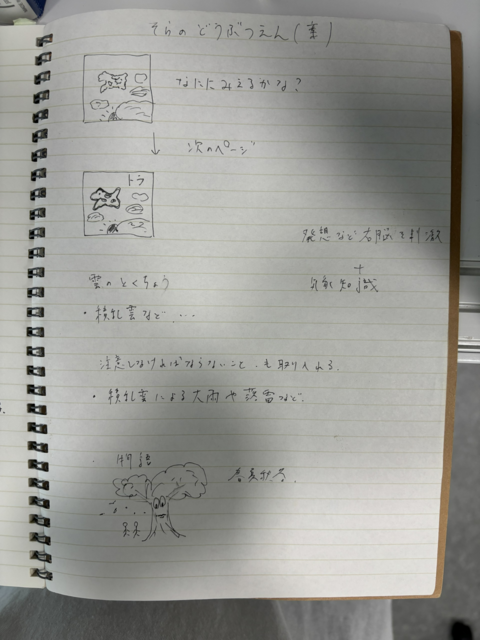 そらのどうぶつえん(案)
なににみえるかな?
次のページ
トラ
発想など右脳を刺激
+
知識
雲のとくちょう
・積乱雲など...
注意しなければならないことも取り入れる.
・積乱雲による大雨や落雷など.
物語